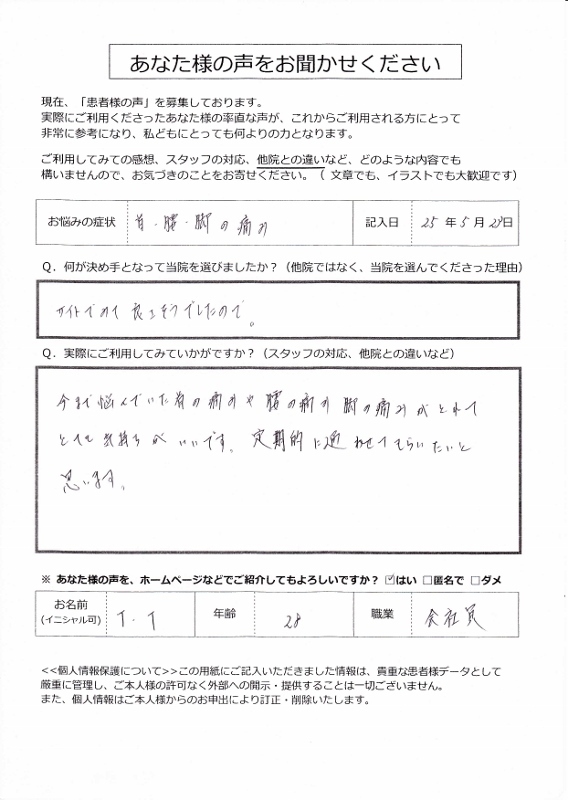 あなた様の声をお聞かせください
現在、「患者様の声」を募集しております。
実際にご利用くださったあなた様の率直な声が、これからご利用される方にとって
非常に参考になり、私どもにとっても何よりの力となります。
ご利用してみての感想、スタッフの対応、他院との違いなど、どのような内容でも
構いませんので、お気づきのことをお寄せください。（ 文章でも、イラストでも大歓迎です）
お悩みの症状 首・腰・脚の痛み 記入日 25年5月29日
Q．何が決め手となって当院を選びましたか？（他院ではなく、当院を選んでくださった理由）
サイトでみて 良さそうでしたので。
Q．実際にご利用してみていかがですか？（スタッフの対応、他院との違いなど）
今まで悩んでいた首の痛みや腰の痛み脚の痛みがとれて
とても気持ちがいいです。定期的に通わせてもらいたいと
思います。
※ あなた様の声を、ホームページなどでご紹介してもよろしいですか？ ☑はい □匿名で □ダメ
お名前 T.T 年齢 28 職業 会社員
(イニシャル可)
<<個人情報保護について>>この用紙にご記入いただきました情報は、貴重な患者様データとして
厳重に管理し、ご本人様の許可なく外部への開示・提供することは一切ございません。
また、個人情報はご本人様からのお申出により訂正・削除いたします。